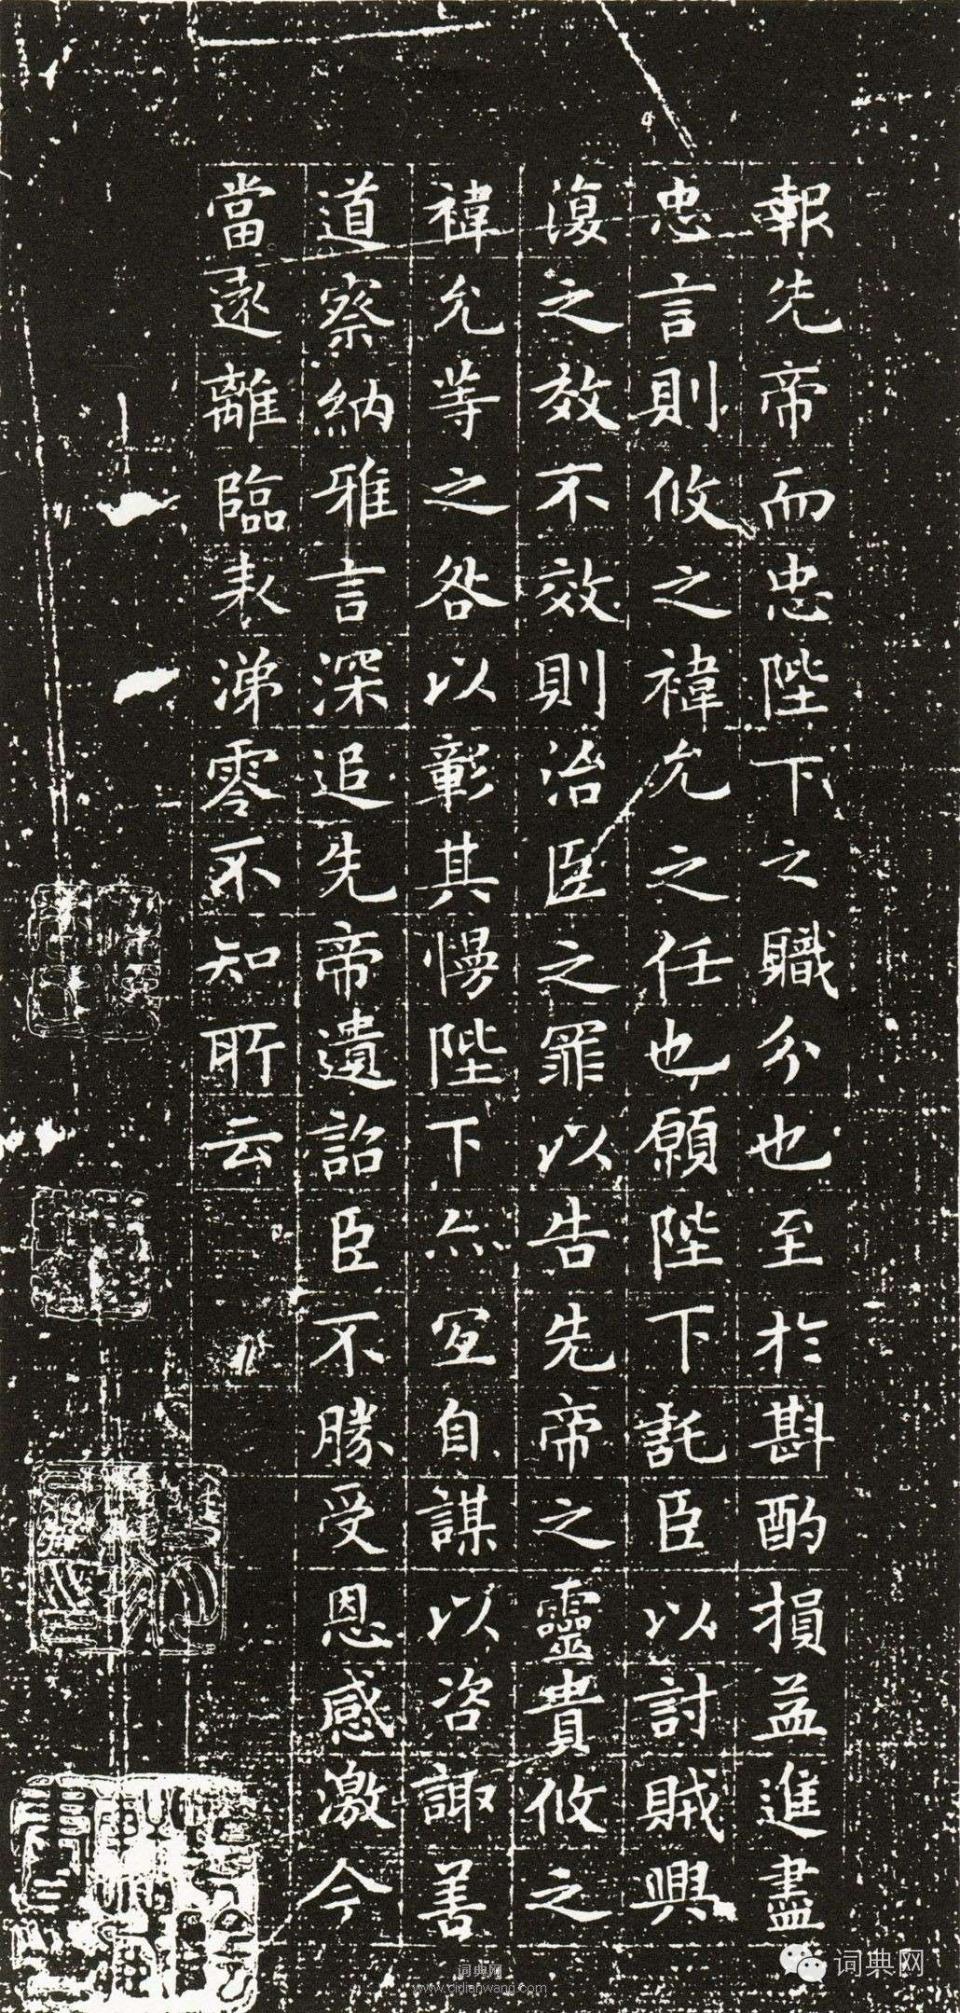 報先帝而忠陛下之職分也至於斟酌損益進盡
忠言則攸之禕允之任也願陛下託臣以討賊興
復之效不效則治臣之罪以告先帝之靈責攸之
禕允等之咎以彰其慢陛下亦宜自謀以咨諏善
道察納雅言深追先帝遺詔臣不勝受恩感激今
當遠離臨表涕零不知所云
词典网
www.cidianwang.com
词典网